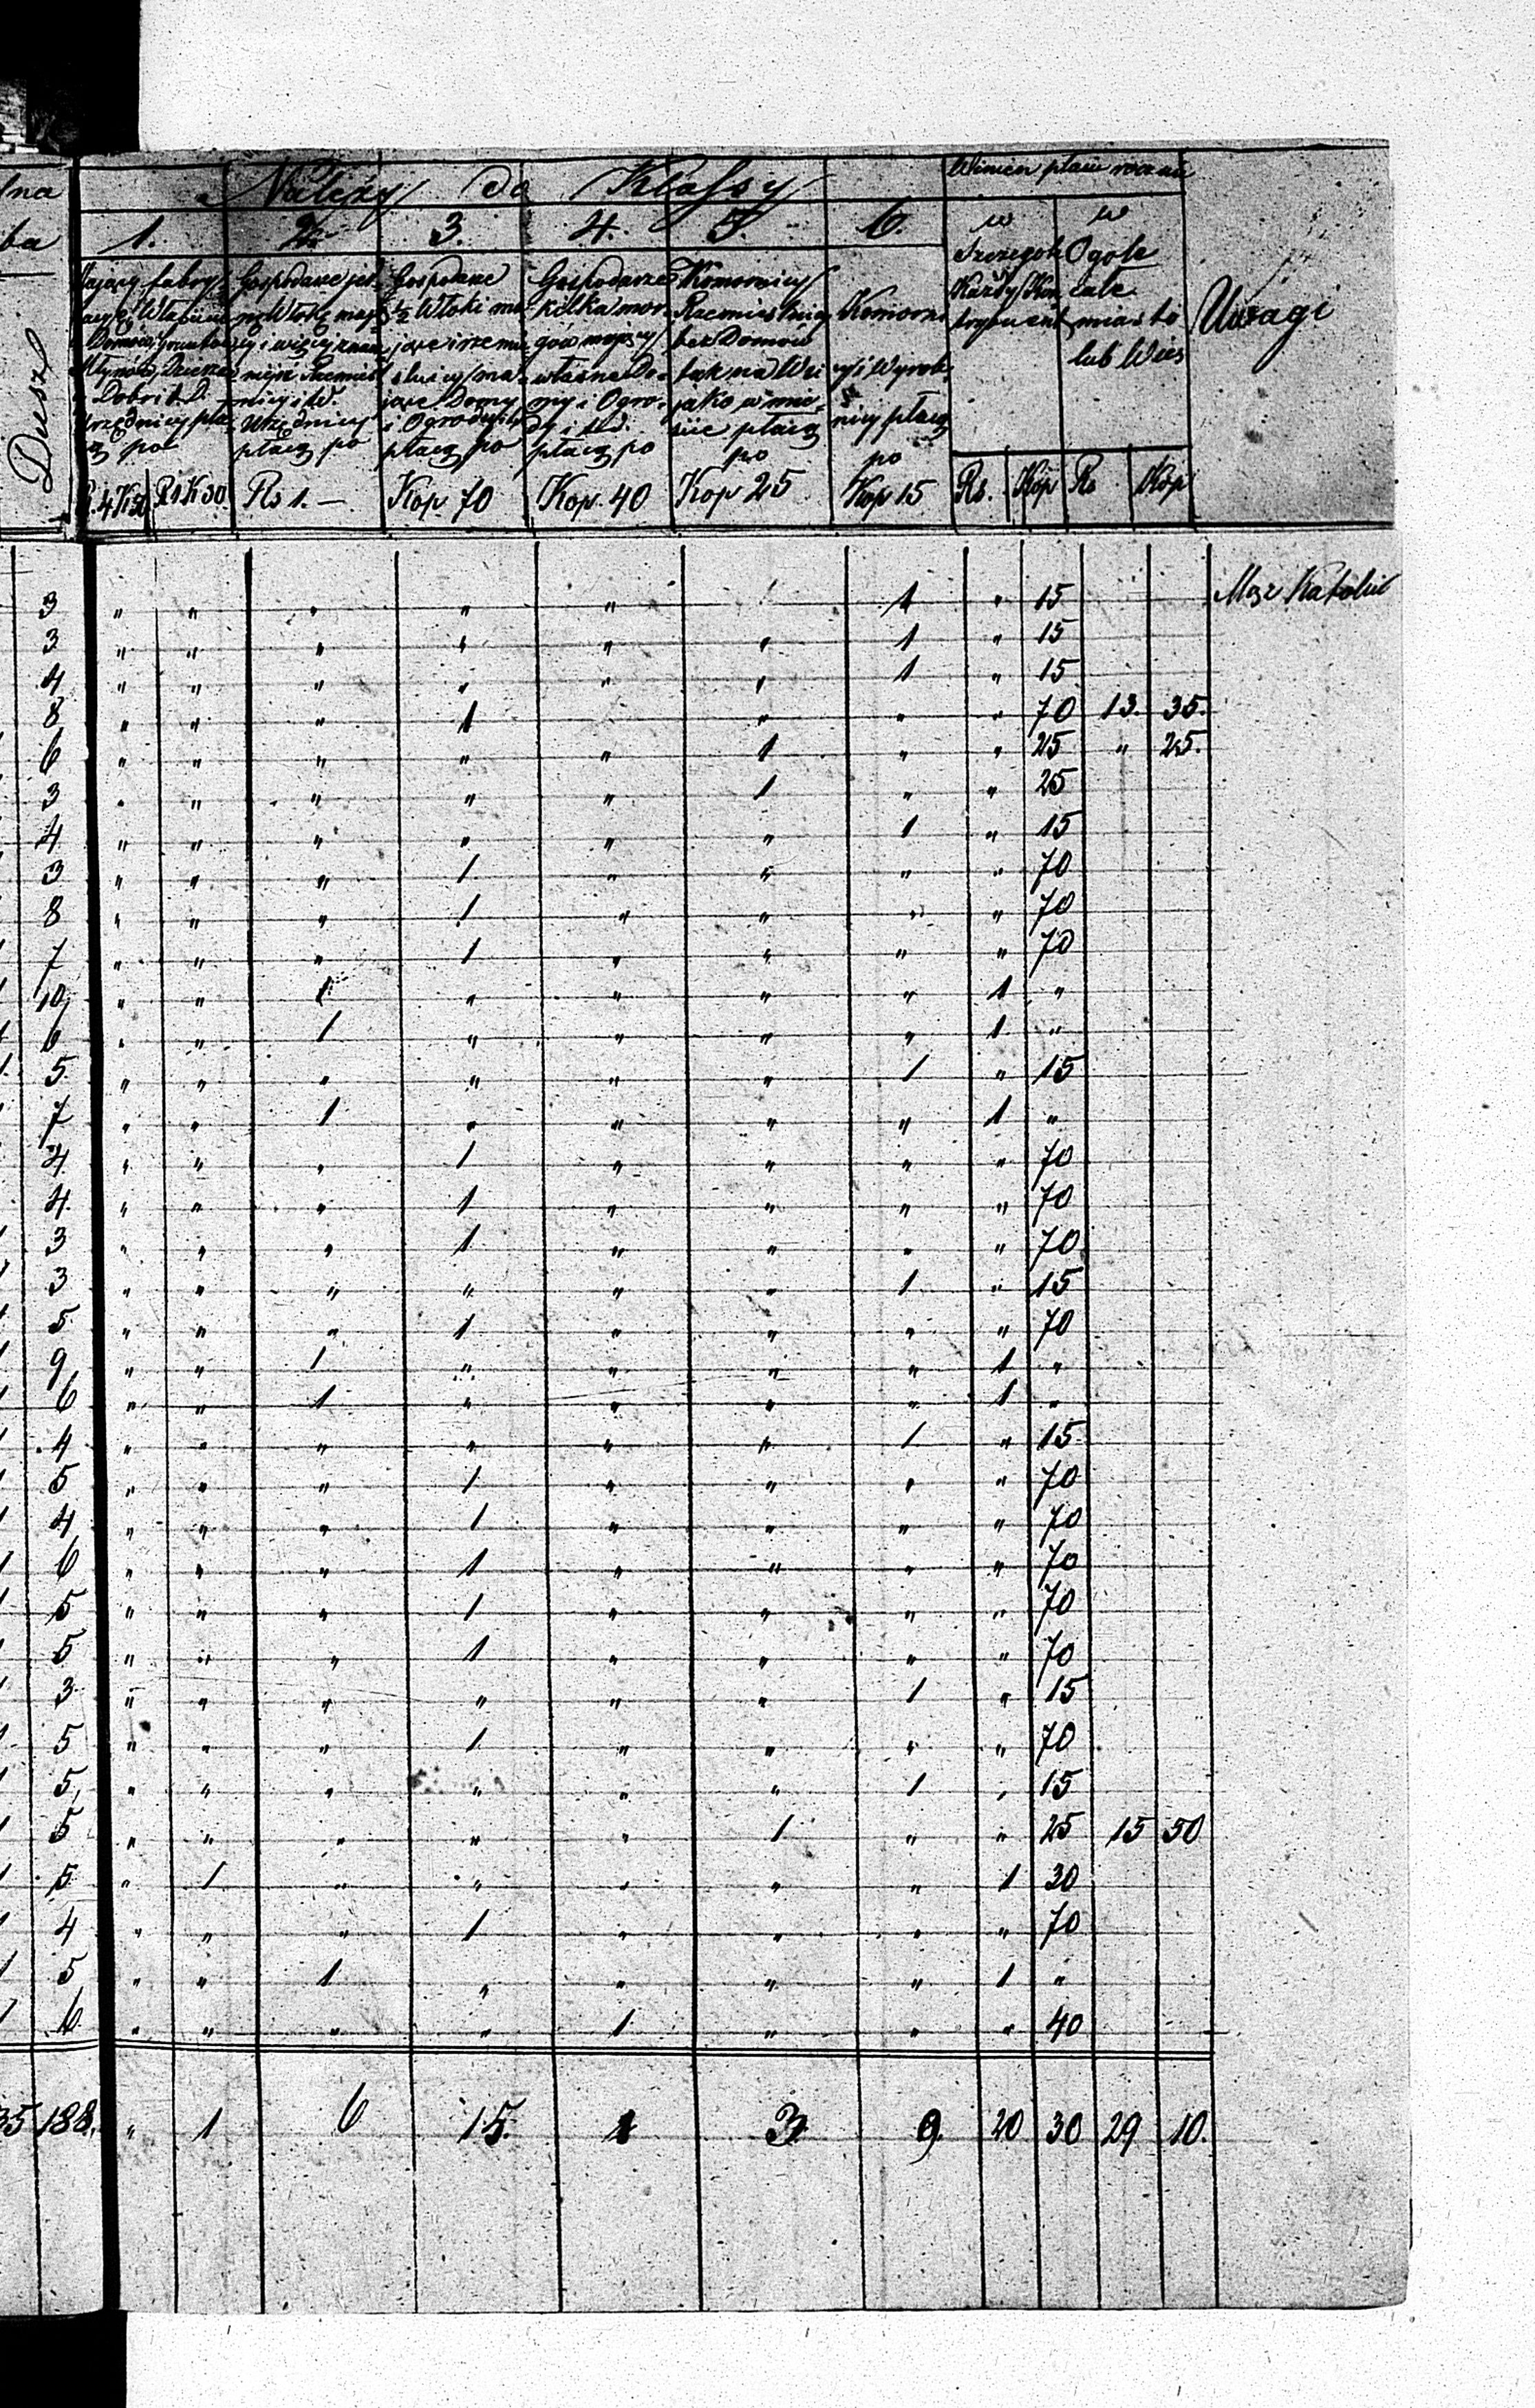 lna Należy do Klassy Winien płacić rocznie
ba 1. 2. 3. 4. 5. 6. w w
Szczegole Ogole
Każdy Kon całe
trybuent miasto
lub Wieś
Uwagi
Dusz
Mający fabry
Domów
Młynów Dzierżaw
Dobr i t.D.
Urzędnicy pła
cą po
R. 4 K 50 Rs 1 K 30
Gospodarze
Włokę mają
i więcej
nicy i t.d.
Urzędnicy
płacą po
Rs 1. —
Gospodarze
½ Włoki ma
jące i rzemie
slnicy ma
jące Domy
i Ogrody i t.d.
płacą po
Kop. 70
Gospodarze
kilka mor
gów mający
własne Do
my i Ogro
dy i t.d.
płacą po
Kop. 40
Komornicy
Rzemieślnicy
bez Domów
tak na Wsi
jako w mie
ście płacą
po
Kop 25
Komorni
cy i Wyrob
nicy płacą
po
Kop 15
Rs. Kop Rs Kop
3 " " " " " 1 " 15 Mąz Katolik
3 " " " " " " 1 " 15
4 " " " " " " 1 " 15
8 " " " 1 " " " 70 13. 35.
6 " " " " " 1 " " 25 " 25.
3 " " " " " 1 " " 25
4 " " " " " " 1 " 15
3 " " " 1 " " " " 70
8 " " " 1 " " " " 70
7 " " " 1 " " " " 70
10 " " 1 " " " " 1 "
6 " " 1 " " " " 1 "
5 " " " " " " 1 " 15
7 " " 1 " " " " 1 "
4 " " " 1 " " " " 70
4 " " " 1 " " " " 70
3 " " " 1 " " " " 70
3 " " " " " " 1 " 15
5 " " " 1 " " " " 70
9 " " 1 " " " " 1 "
6 " " 1 " " " " 1 "
4 " " " " " " 1 " 15
5 " " " 1 " " " " 70
4 " " " 1 " " " " 70
6 " " " 1 " " " " 70
5 " " " 1 " " " " 70
5 " " " 1 " " " " 70
3 " " " " " " 1 " 15
5 " " " 1 " " " " 70
5 " " " " " " 1 " 15
5 " " " " " 1 " " 25 15 50
5 " 1 " " " " " 1 30
4 " " " 1 " " " " 70
5 " " 1 " " " " 1 "
6 " " " " 1 " " " 40
35 188. " 1 6 15. 1 3 9. 20 30 29 10.